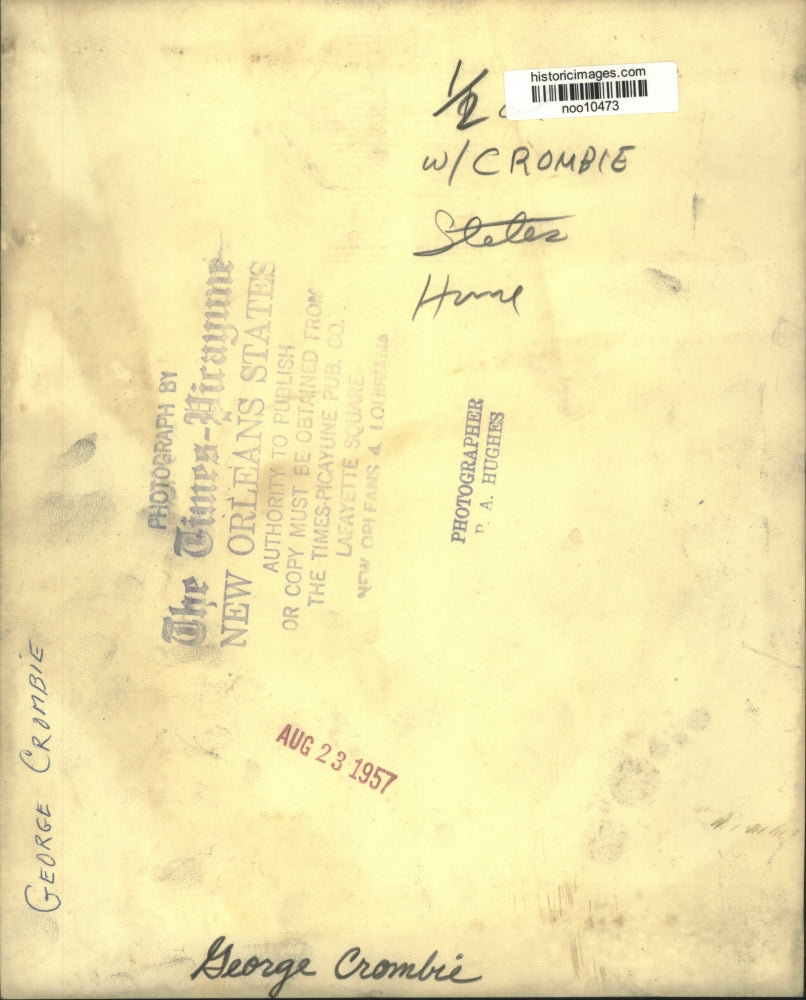 historicimages.com
noo10473
1/2
W/ CROMBIE
States
PHOTOGRAPH BY
The Times-Picayune
NEW ORLEANS STATES
AUTHORITY TO PUBLISH
OR COPY MUST BE OBTAINED FROM
THE TIMES-PICAYUNE PUB. CO.
LAFAYETTE SQUARE
NEW ORLEANS 4, LOUISIANA
PHOTOGRAPHER
P. A. HUGHES
AUG 23 1957
GEORGE CROMBIE
George Crombie